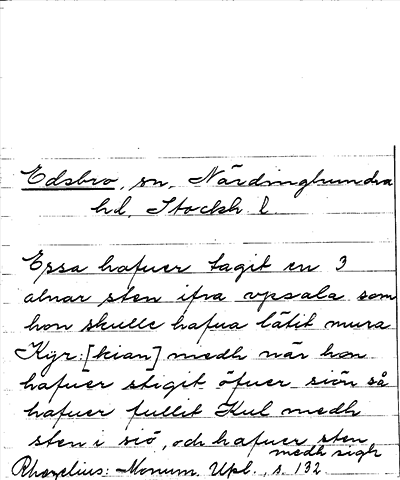 Edsbro, sn, Närdinghundra
hd, Stockh l.
Essa hafuer tagit en 3
alnar sten ifra vpsala som
hon skulle hafua låtit mura
Kyr:[kian] medh när hon
hafuer stigit öfuer siön så
hafuer fullit Kul medh
sten i siö, och hafuer sten
medh sigh
Rhezelius: Monum. Upl., s. 132